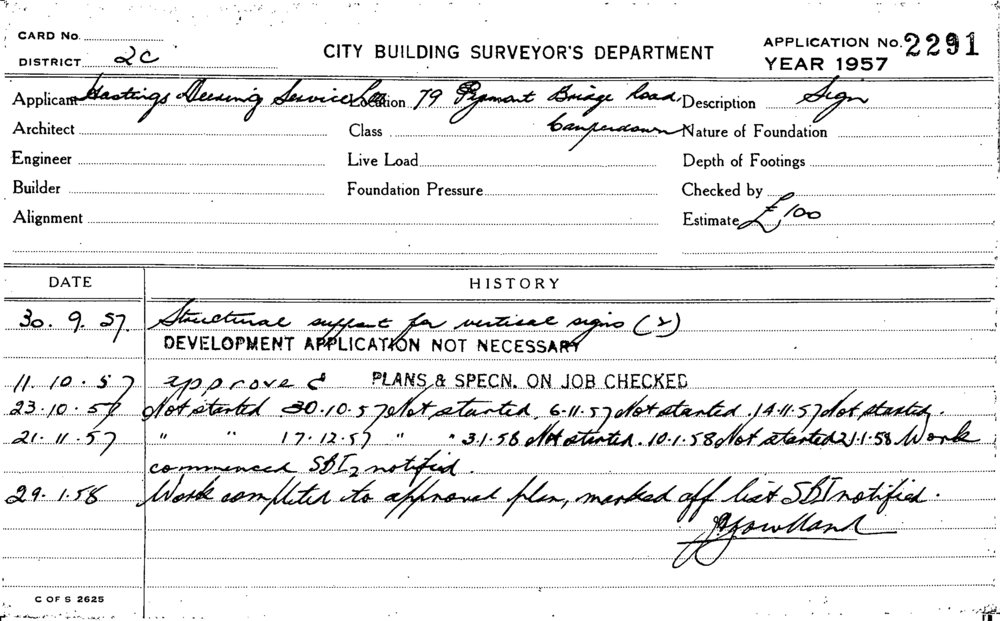 CARD No.
DISTRICT 2C
CITY BUILDING SURVEYOR'S DEPARTMENT
APPLICATION No. 2291
YEAR 1957
Applicant Hastings Deering Service Location 79 Pyrmont Bridge Road, Description Sign
Architect Class Camperdown Nature of Foundation
Engineer Live Load Depth of Footings
Builder Foundation Pressure Checked by
Alignment Estimate £100
DATE HISTORY
30. 9. 57 Structural support for vertical signs (2)
DEVELOPMENT APPLICATION NOT NECESSARY
11. 10. 57 approved PLANS & SPECN. ON JOB CHECKED
23. 10. 57 Not started 30.10.57 Not started, 6.11.57 Not started. 14.11.57 Not started.
21. 11. 57 " " 17.12.57 " " 3.1.58 Not started. 10.1.58 Not started 21.1.58. Work
commenced SBI notified.
29. 1. 58 Work completed to approved plan, marked off list SBI notified.
C OF S 2625